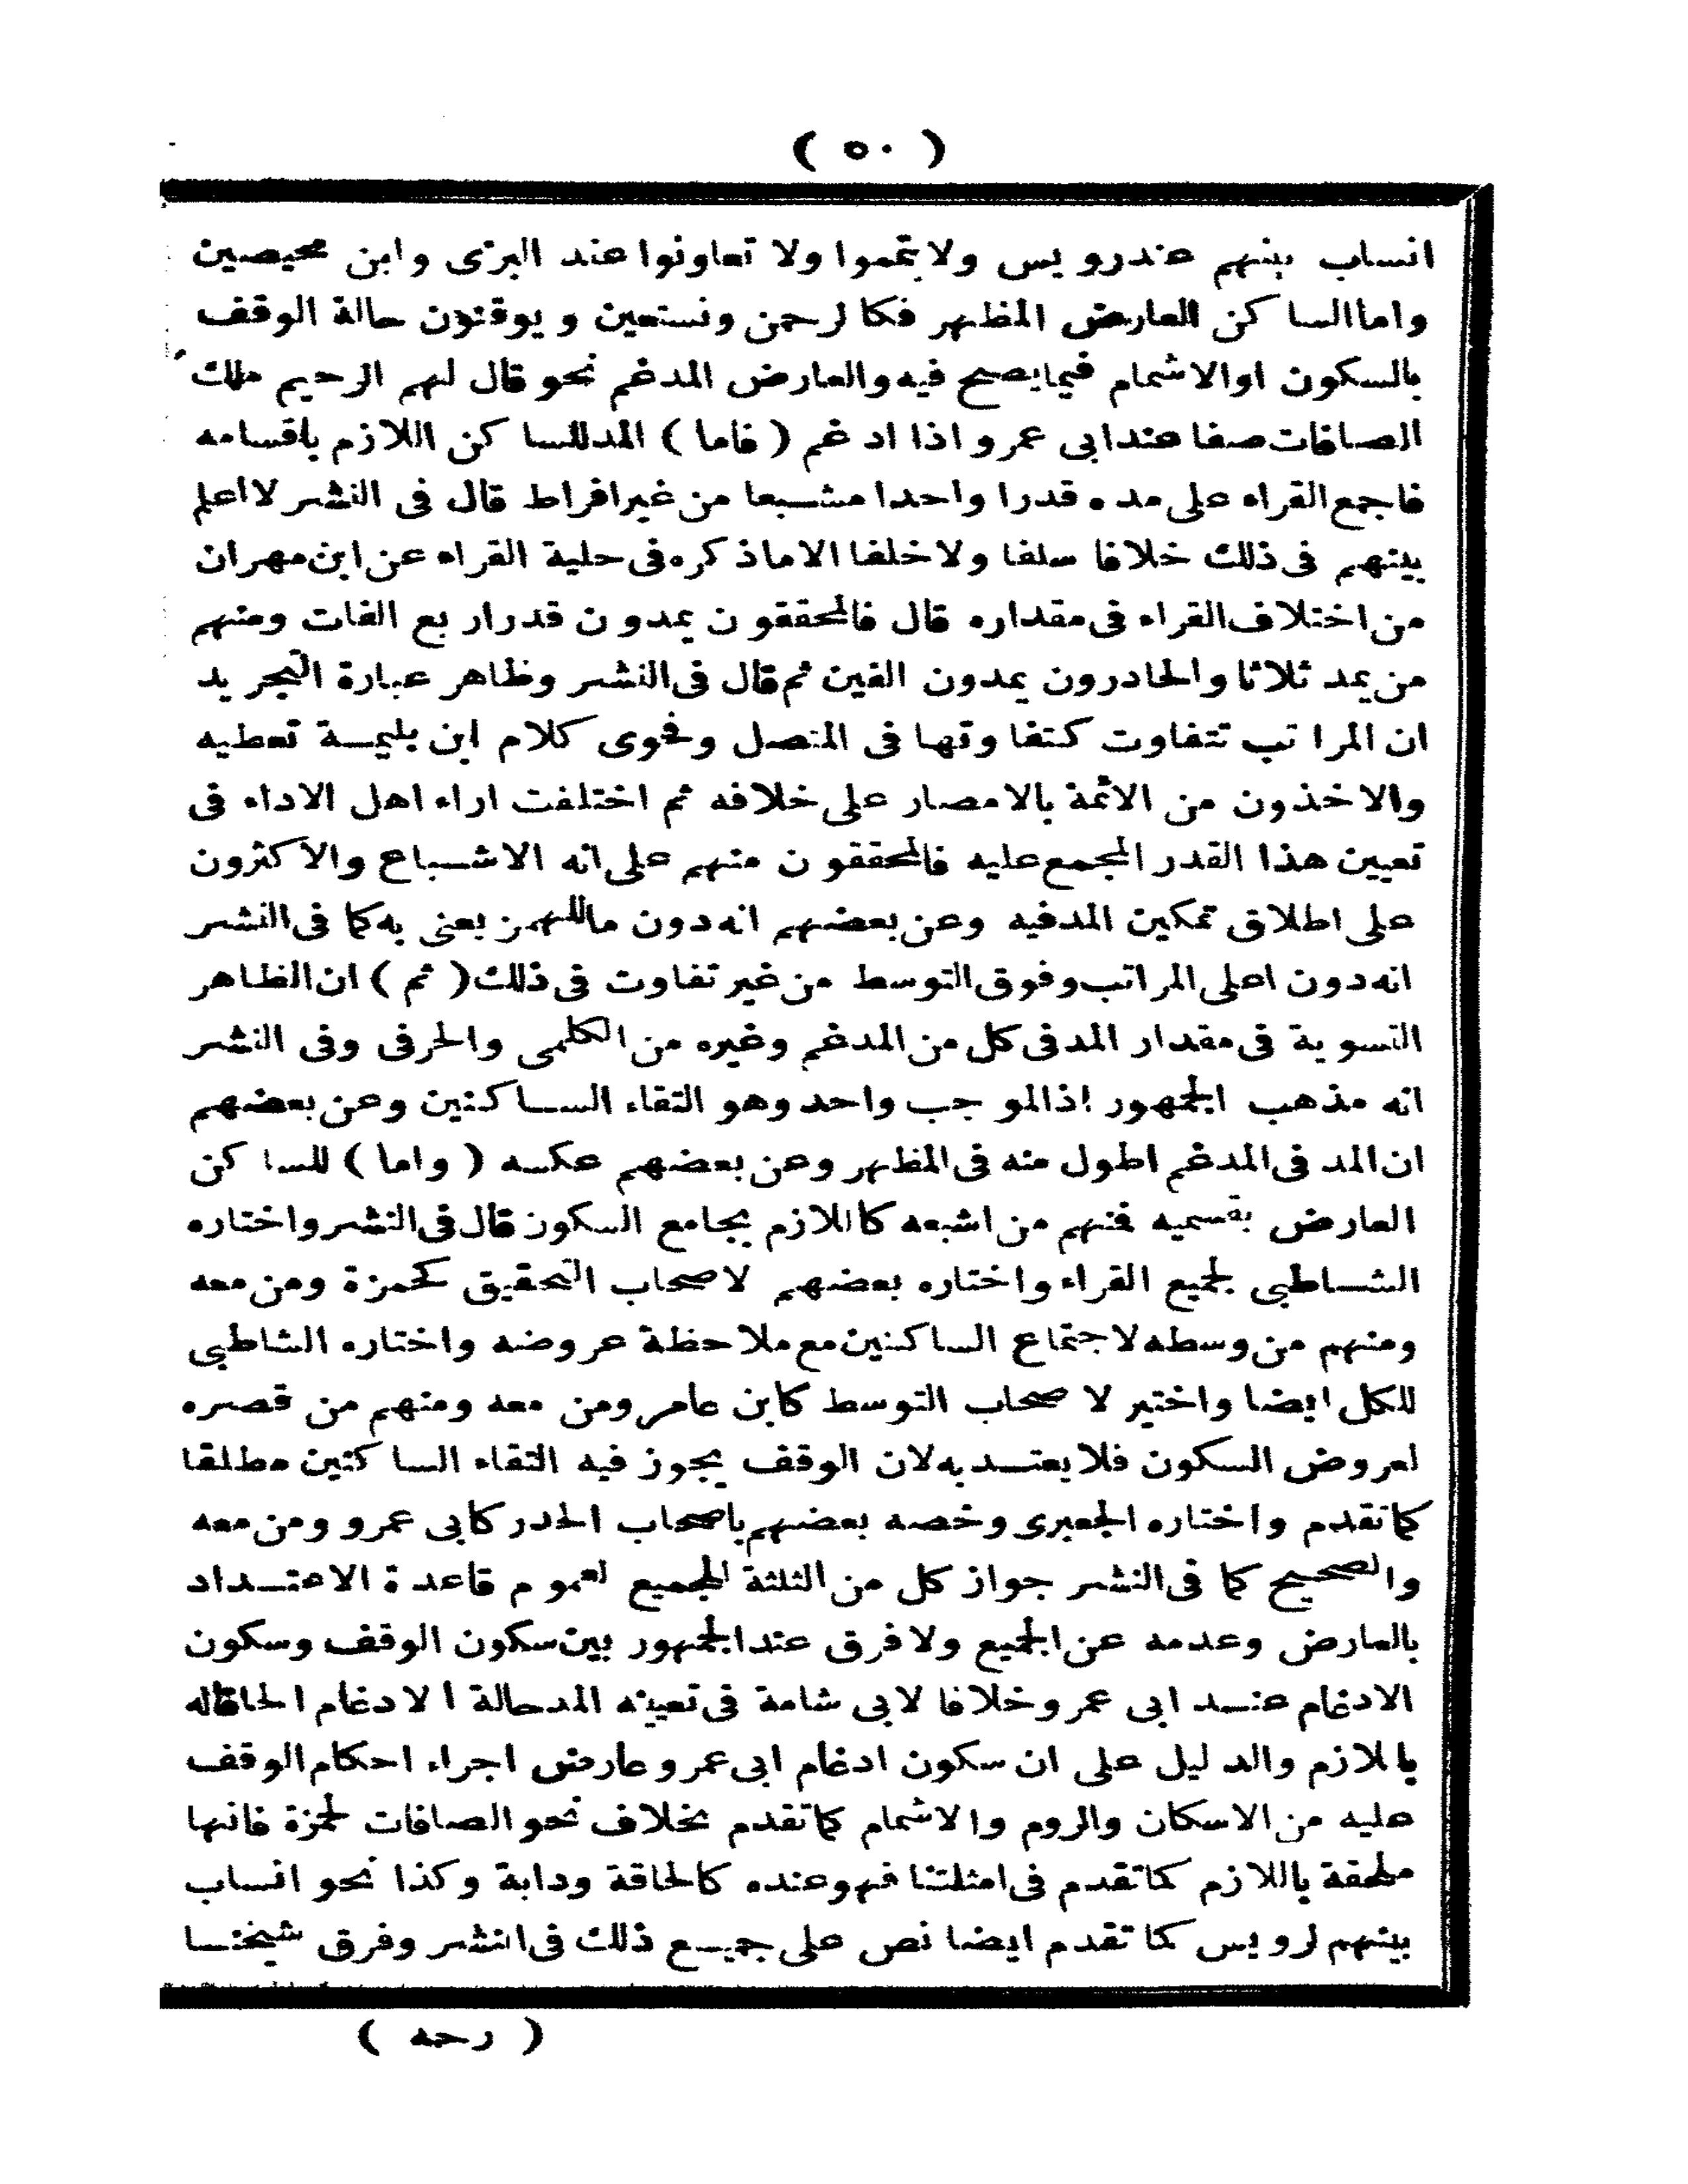 ( ٥٠ )
انساب بينهم عند رويس ولا تيمموا ولا تعاونوا عند البزى وابن محيصين
واما الساكن العارض المظهر فكالرحمن ونستعين ويوقنون حالة الوقف
بالسكون او الاشمام فيما يصح فيه والعارض المدغم نحو قال لهم الرحيم ملك
الصافات صفا عند ابى عمرو اذا ادغم ( فاما ) المد للساكن اللازم باقسامه
فاجمع القراء على مده قدرا واحدا مشبعا من غير افراط قال فى النشر لا اعلم
بينهم فى ذلك خلافا سلفا ولا خلفا الا ما ذكره فى حلية القراء عن ابن مهران
من اختلاف القراء فى مقداره قال فالمحققون يمدون قدر اربع الفات ومنهم
من يمد ثلاثا والحادرون يمدون الفين ثم قال فى النشر وظاهر عبارة التجريد
ان المراتب تتفاوت كتفاوتها فى المتصل وفحوى كلام ابن بليمة تعطيه
والاخذون من الائمة بالامصار على خلافه ثم اختلفت اراء اهل الاداء فى
تعيين هذا القدر المجمع عليه فالمحققون منهم على انه الاشباع والاكثرون
على اطلاق تمكين المد فيه وعن بعضهم انه دون ما للهمز يعنى به كما فى النشر
انه دون اعلى المراتب وفوق التوسط من غير تفاوت فى ذلك ( ثم ) ان الظاهر
التسوية فى مقدار المد فى كل من المدغم وغيره من الكلمى والحرفى وفى النشر
انه مذهب الجمهور اذ الموجب واحد وهو التقاء الساكنين وعن بعضهم
ان المد فى المدغم اطول منه فى المظهر وعن بعضهم عكسه ( واما ) للساكن
العارض بقسميه فمنهم من اشبعه كاللازم بجامع السكون قال فى النشر واختاره
الشاطبى لجميع القراء واختاره بعضهم لاصحاب التحقيق كحمزة ومن معه
ومنهم من وسطه لاجتماع الساكنين مع ملاحظة عروضه واختاره الشاطبى
للكل ايضا واختير لاصحاب التوسط كابن عامر ومن معه ومنهم من قصره
لعروض السكون فلا يعتد به لان الوقف يجوز فيه التقاء الساكنين مطلقا
كما تقدم واختاره الجعبرى وخصه بعضهم باصحاب الحدر كابى عمرو ومن معه
والصحيح كما فى النشر جواز كل من الثلثة للجميع لعموم قاعدة الاعتداد
بالعارض وعدمه عن الجميع ولا فرق عند الجمهور بين سكون الوقف وسكون
الادغام عند ابى عمرو خلافا لابى شامة فى تعيينه المد حالة الادغام الحاقا له
باللازم والدليل على ان سكون ادغام ابى عمرو عارض اجراء احكام الوقف
عليه من الاسكان والروم والاشمام كما تقدم بخلاف نحو الصافات لحمزة فانها
ملحقة باللازم كما تقدم فى امثلتنا فهو عنده كالحاقة ودابة وكذا نحو انساب
بينهم لرويس كما تقدم ايضا نص على جميع ذلك فى النشر وفرق شيخنا
( رحمه )